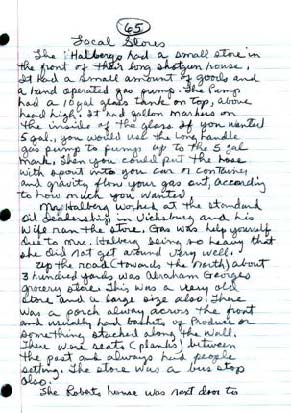 65
Local Stores
The Halbergs had a small store in
the front of their long shotgun house,
It had a small amount of goods and
a hand operated gas pump. The Pump
had a 10 gal glass tank on top, above
head high. It had gallon markers on
the inside of the glass if you wanted
5 gal, you would use the long handle
gas pump to pump up to the 5 gal
mark. Then you could put the hose
with spout into you car or container
and gravity flow your gas out, according
to how much you wanted.
Mr. Halberg worked at the standard
oil dealership in Vicksburg and his
wife ran the store. Gas was help yourself
due to Mrs. Halberg being so heavy that
she did not get around very well.
Up the road towards the North, about
3 hundred yards was Abraham Georges
grocery store. This was a very old
store and a large size also. There
was a porch alway across the front
and usually had baskets of Produce or
something stacked along the wall.
There were seats (planks) between
the post and always had people
setting. The store was a bus stop
also.
The Roberts house was next door to